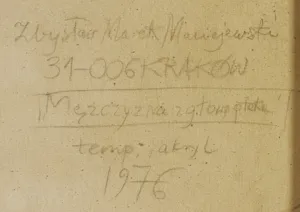 Zbysław Marek Maciejewski
31-006 KRAKÓW
Mężczyzna z głową ptaka
temp., akryl
1976